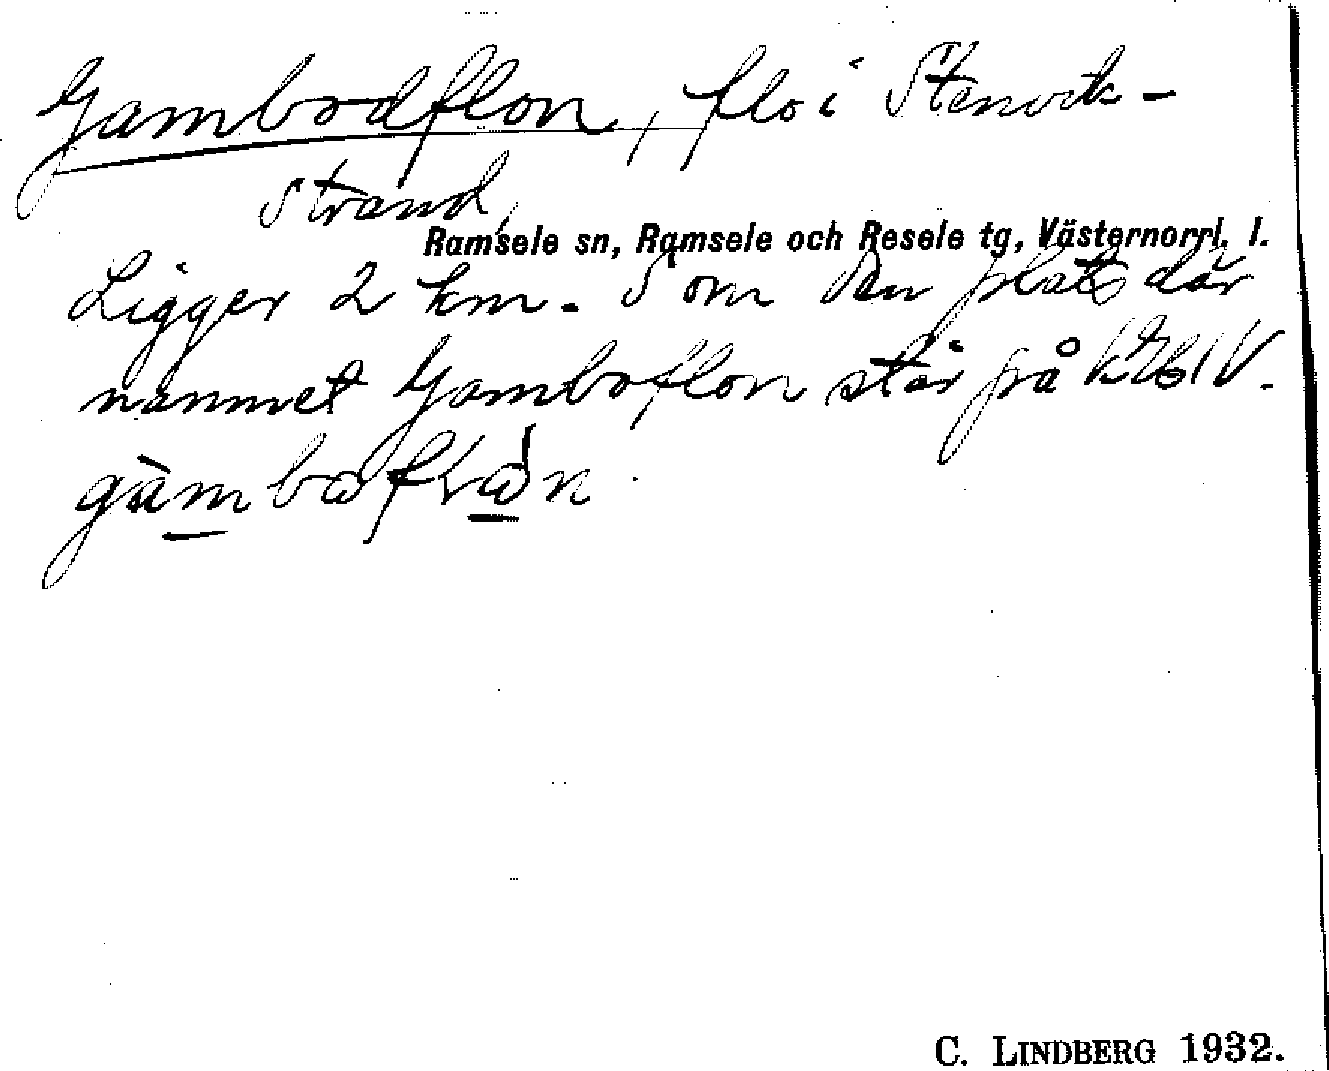 Gambodflon, flo i Stenvik-
strand,
Ramsele sn, Ramsele och Resele tg, Västernorrl. l.
Ligger 2 km. S om den plats där
namnet Gamboflon står på
gàmbaflån.
C. LINDBERG 1932.